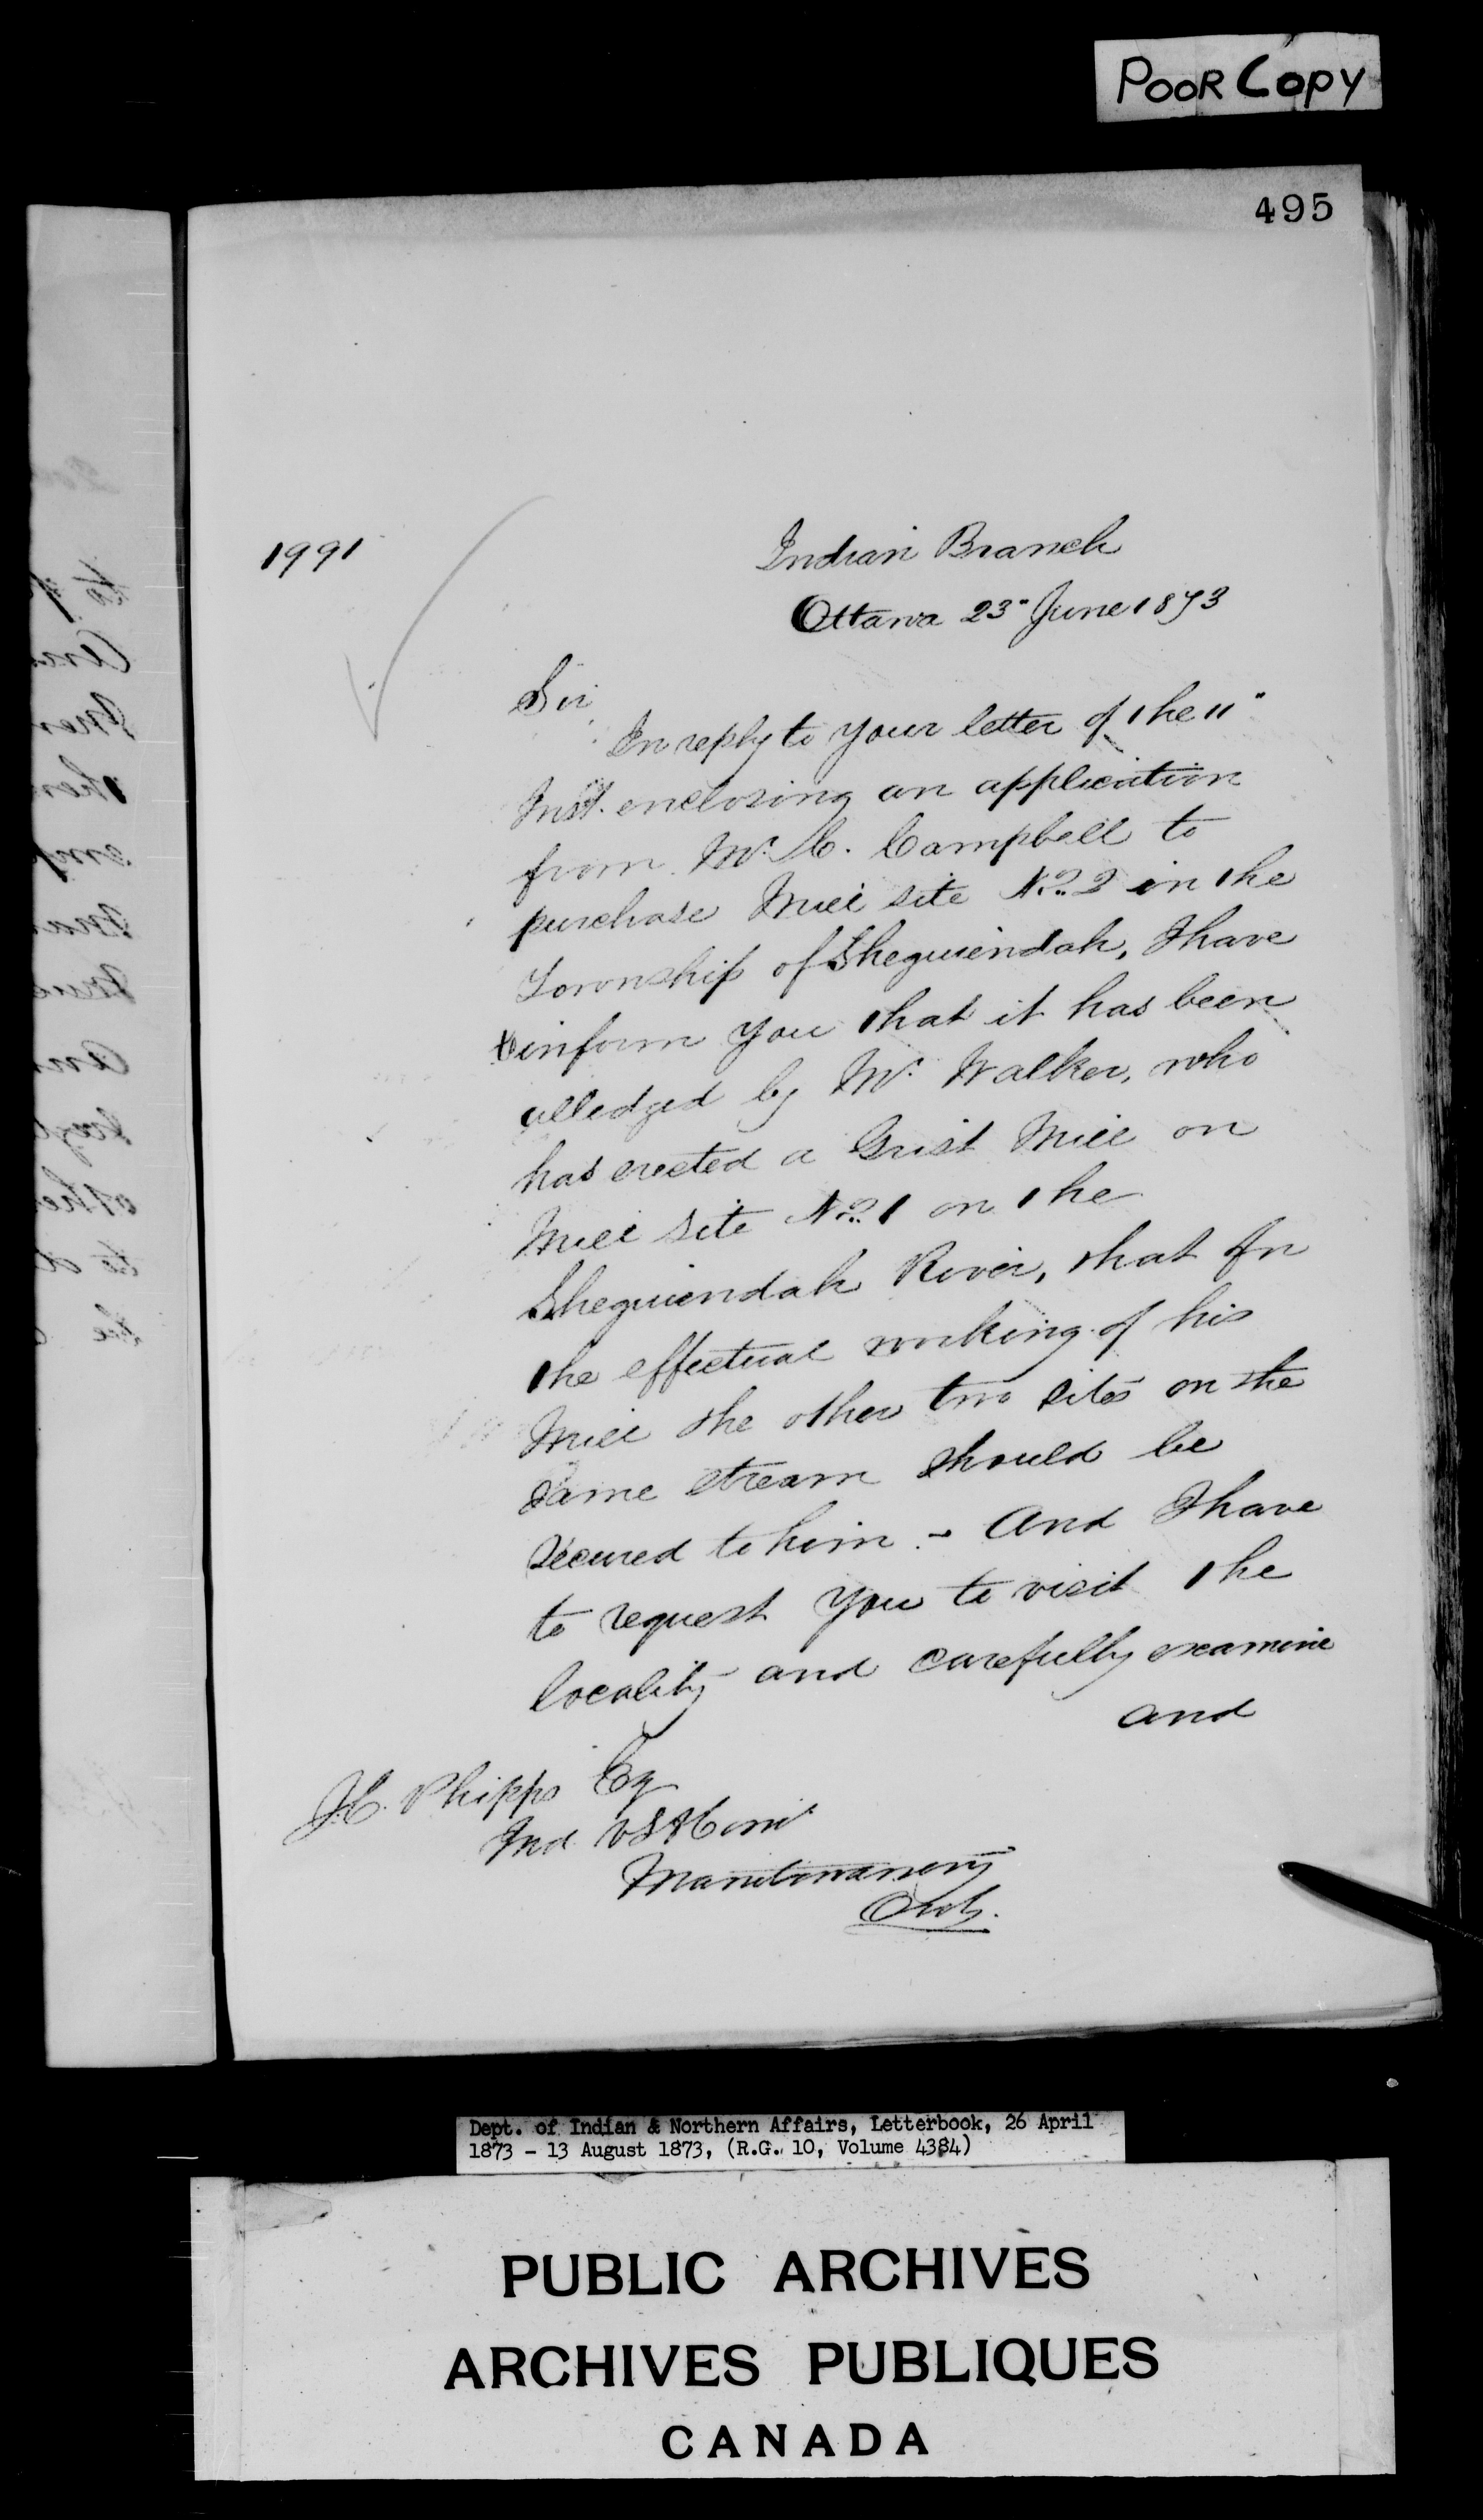 POOR COPY
495
1991
Indian Branch
Ottawa 23" June 1873
Sir,
In reply to your letter of the 11"
Inst. enclosing an application
from Mr. C. Campbell to
purchase Mill site No. 2 in the
Township of Sheguiendah, I have
to inform you that it has been
alledged by Mr. Walker, who
has erected a Grist Mill on
Mill site No. 1 on the
Sheguiendah River, that for
the effectual working of his
Mill the other two sites on the
same stream should be
secured to him. - And I have
to request you to visit the
locality and carefully examine
and
J.C. Phipps Esq
Ind V S & Comr
Manitowaning
Ont.
Dept. of Indian & Northern Affairs, Letterbook, 26 April
1873 - 13 August 1873, (R.G. 10, Volume 4384)
PUBLIC ARCHIVES
ARCHIVES PUBLIQUES
CANADA